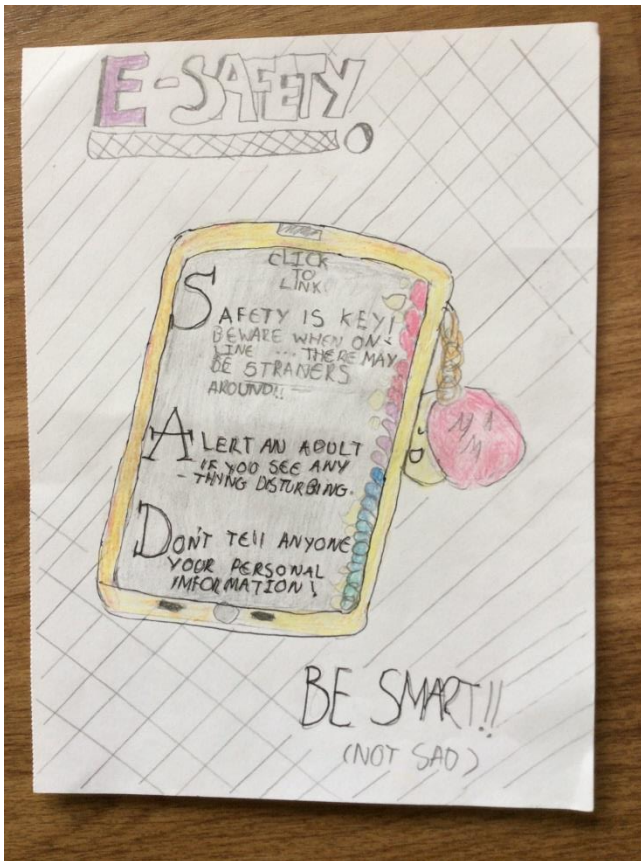 E-SAFETY
CLICK
TO
LINK
SAFETY IS KEY!
BEWARE WHEN ON-
LINE ... THERE MAY
BE STRANERS
AROUND!!
ALERT AN ADULT
IF YOU SEE ANY
-THING DISTURBING.
DON'T TELL ANYONE
YOUR PERSONAL
INFORMATION!
BE SMART!!
(NOT SAD)